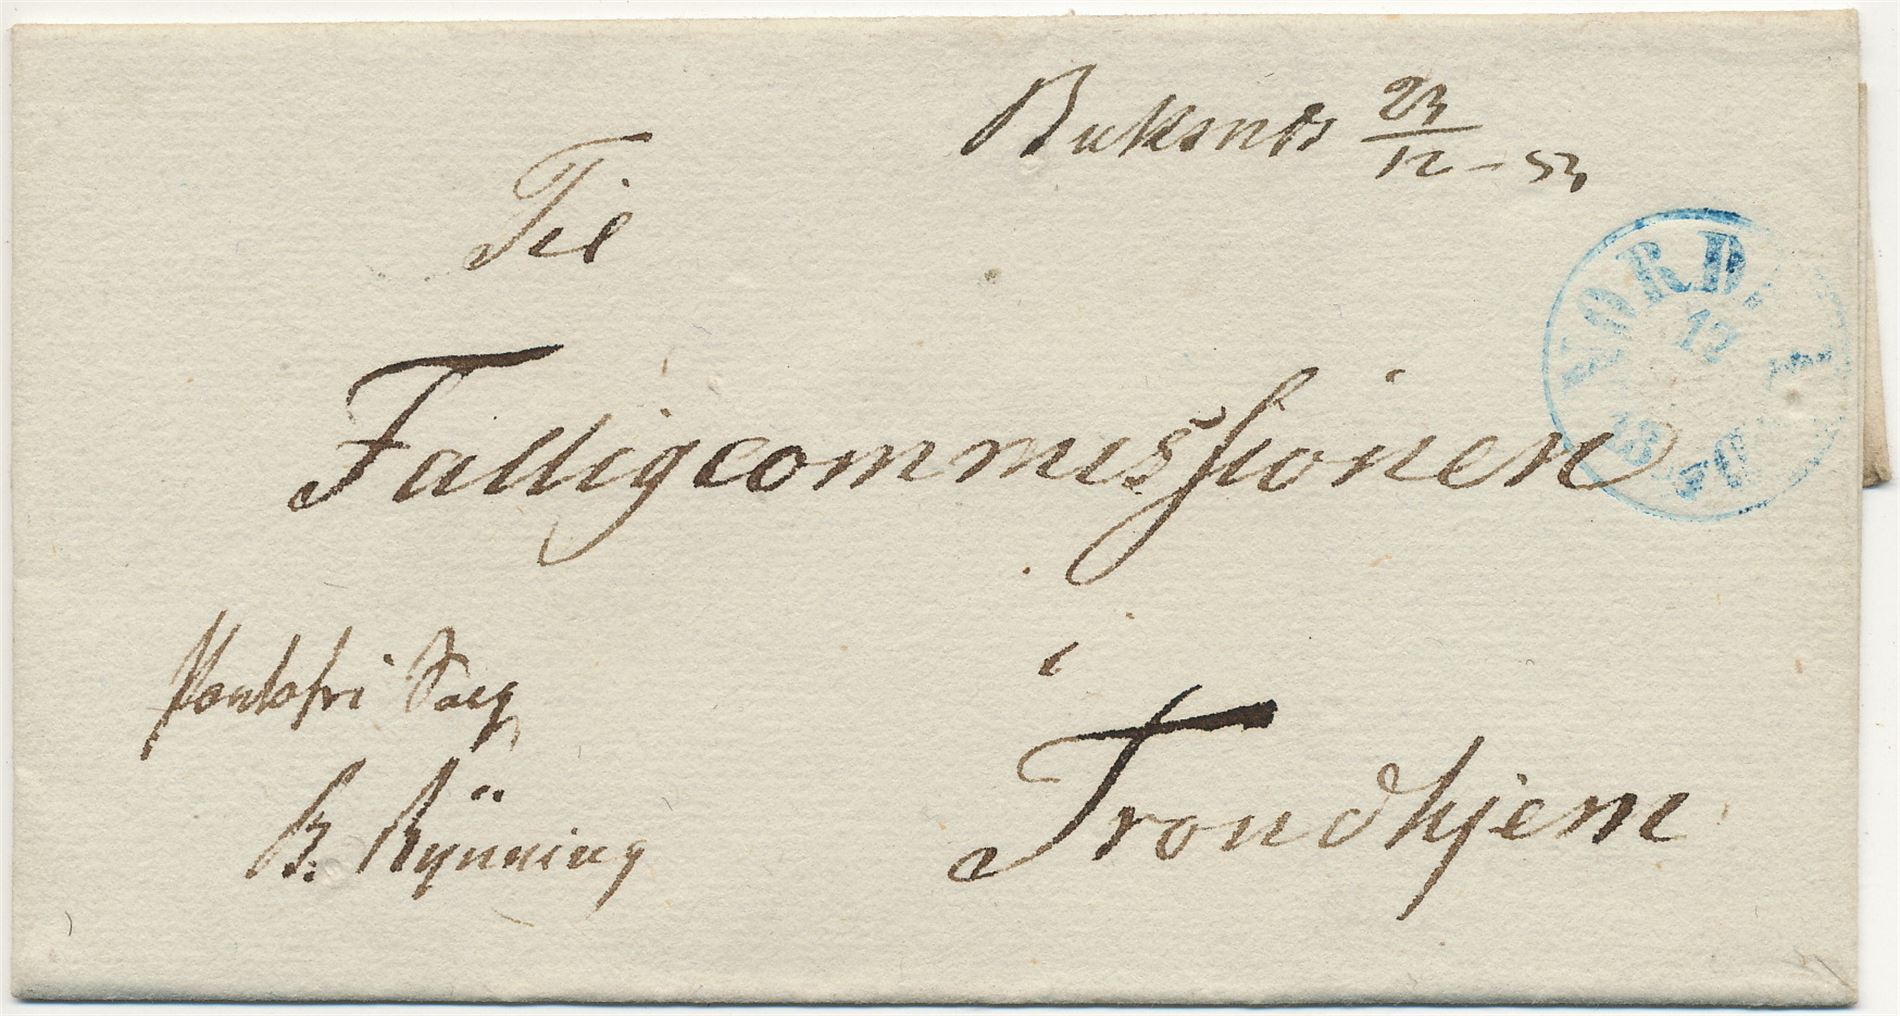 Buksnæs 23/12 - 53
Til
Fattigcommissionen
i
Trondhjem
Portofri Sag
B. Rynning
NORD
12
18